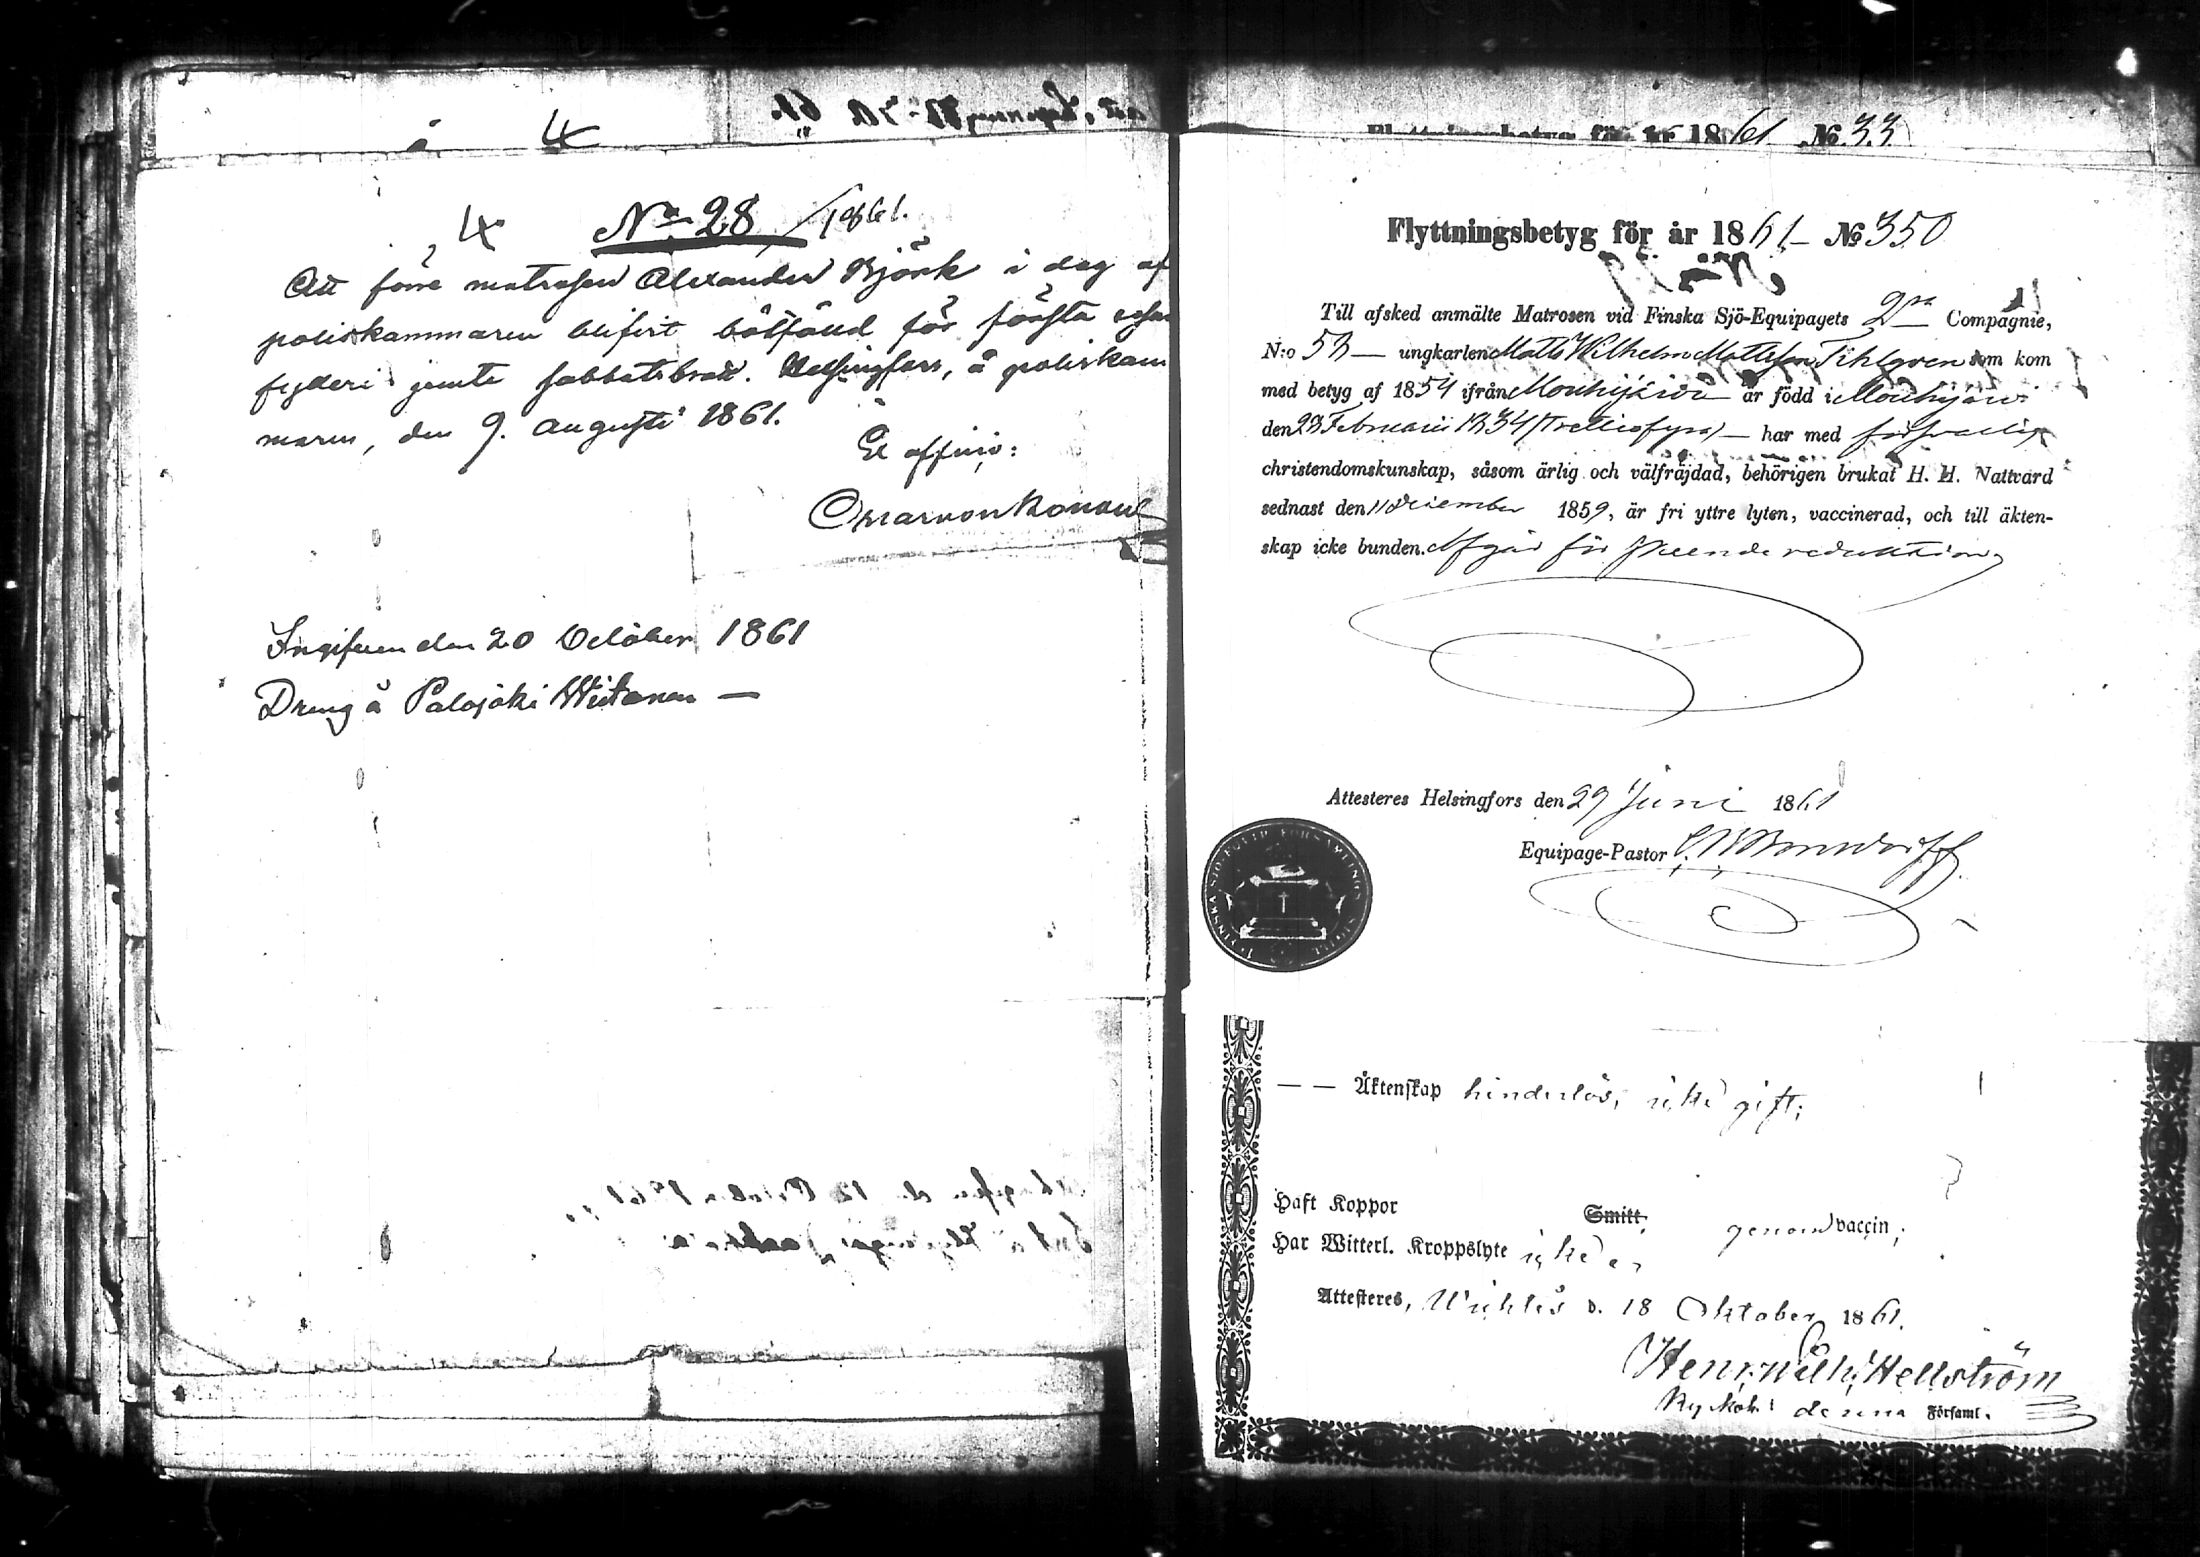 4
4 No 28 /1861.
Att förre matrosen Alexander Björk i dag af
poliskammaren blifvit bötfäld för första
fylleri jemte sabbatsbrott. Helsingfors, å poliskam
maren, den 9. Augusti 1861.
Ex officio:
Ingifven den 20 October 1861
Dreng å Palojoki
Flyttningsbetyg för år 1861. No 33
Flyttningsbetyg för år 1861 – No 350
Till afsked anmälte Matrosen vid Finska Sjö-Equipagets 2ra Compagnie,
N:o 53 — ungkarlen Matts Wilhelm Mattsson Tihlgren som kom
med betyg af 1854 ifrån Mouhijärvi är född i Mouhijärvi
den 23 Februarii 1834 (Trettiofyra) — har med försvarlig
christendomskunskap, såsom ärlig och välfräjdad, behörigen brukat H. H. Nattvard
sednast den 11 December 1859, är fri yttre lyten, vaccinerad, och till äkten-
skap icke bunden. Afgår för skeende reduktion
Attesteres Helsingfors den 29 Juni 1861
Equipage-Pastor
FINSKA SJÖ FÖRSAMLINGS
— — Äktenskap hinderlös, icke gift;
Haft Koppor Smitt, genom vaccin;
Har Witterl. Kroppslyte icke
Attesteres, Wichtis d. 18 Oktober 1861.
Henr. Wilh. Hellström
Kyrkoh. i denna Församl.